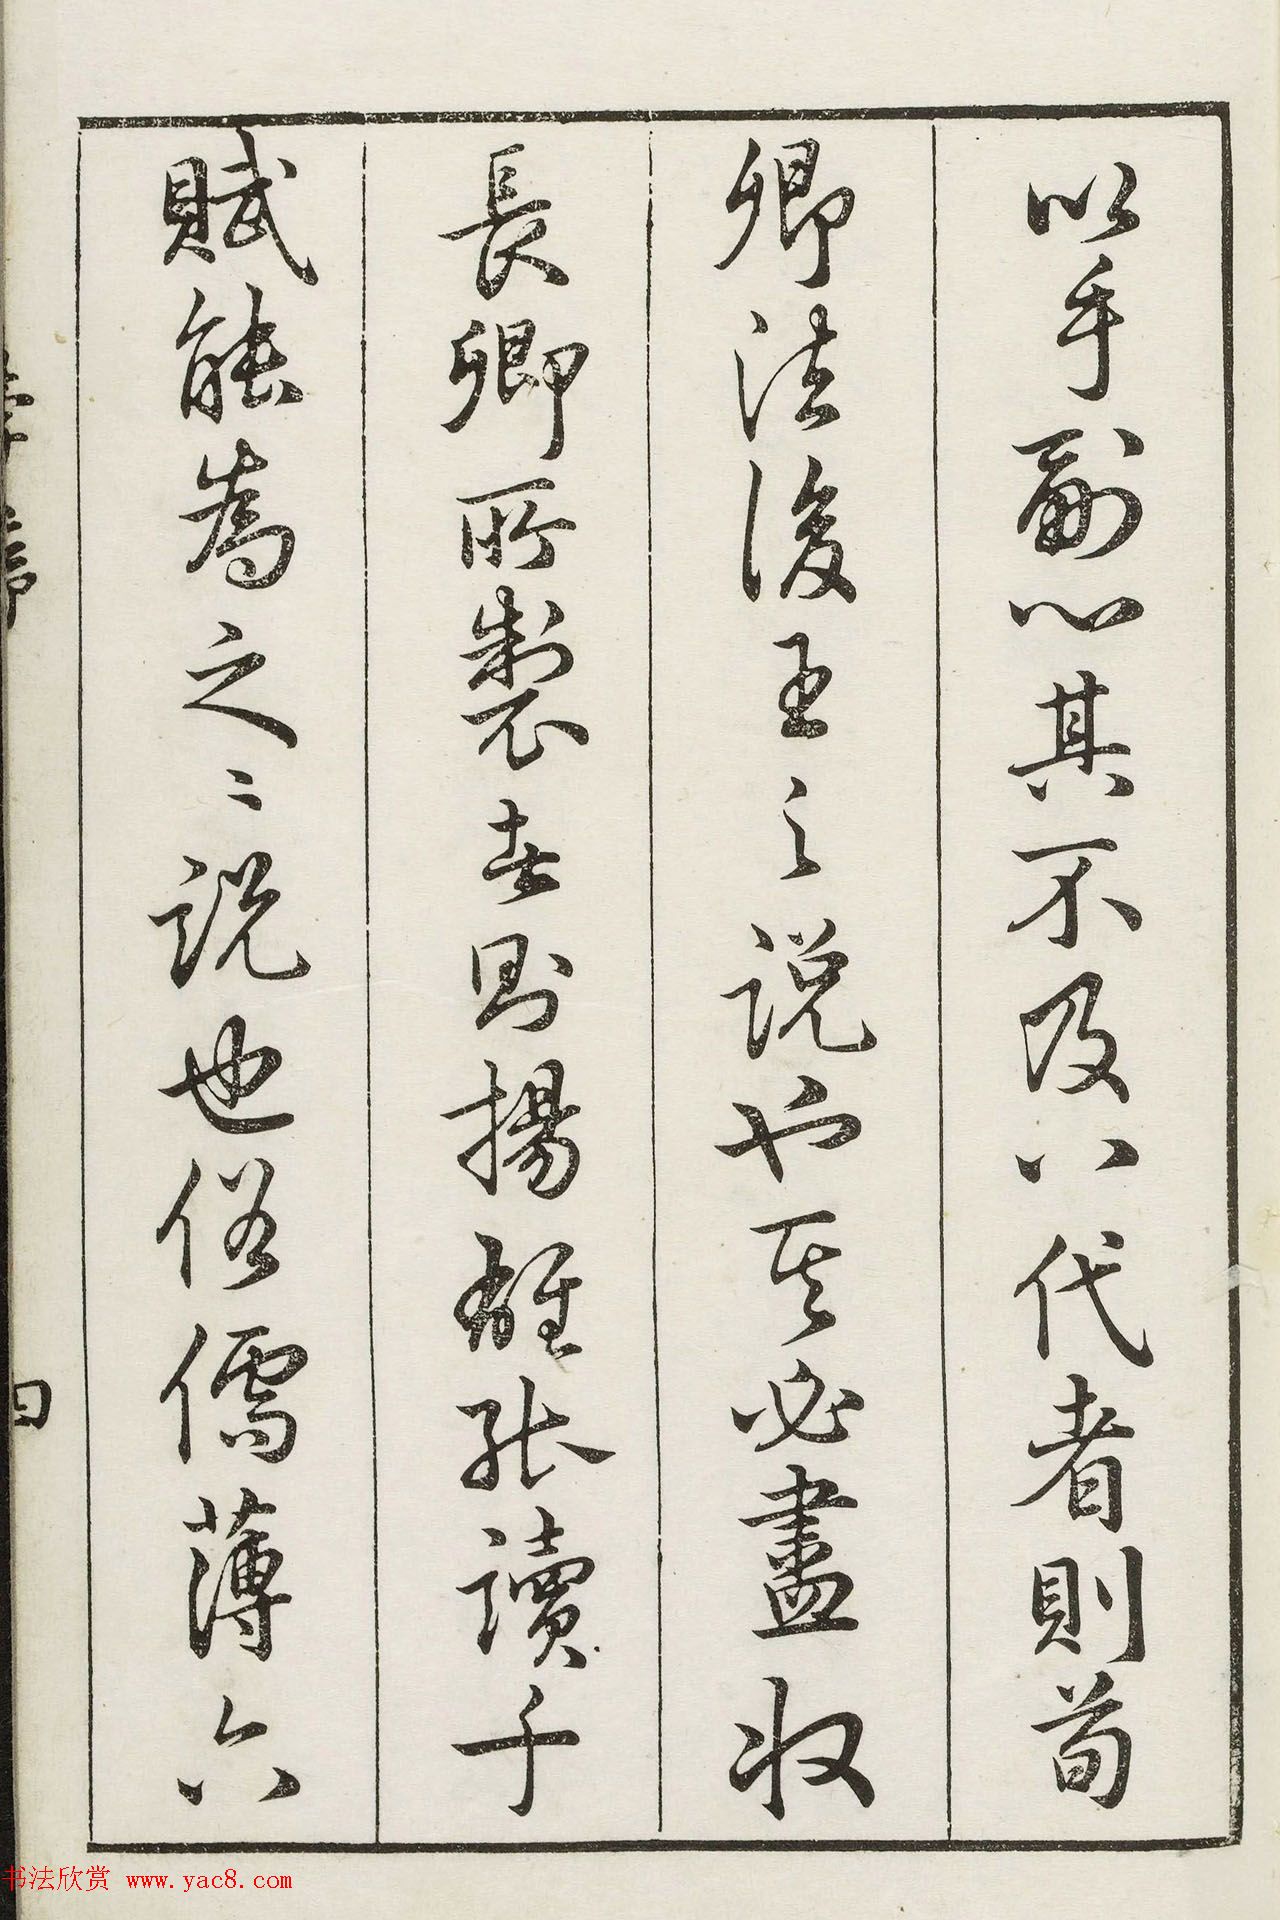 以手副心其不及八代者則荀
卿法後王之說也其必盡收
長卿所製者則揚雄張讀千
賦能為之〻說也俗儒薄六
书法欣赏 www.yac8.com